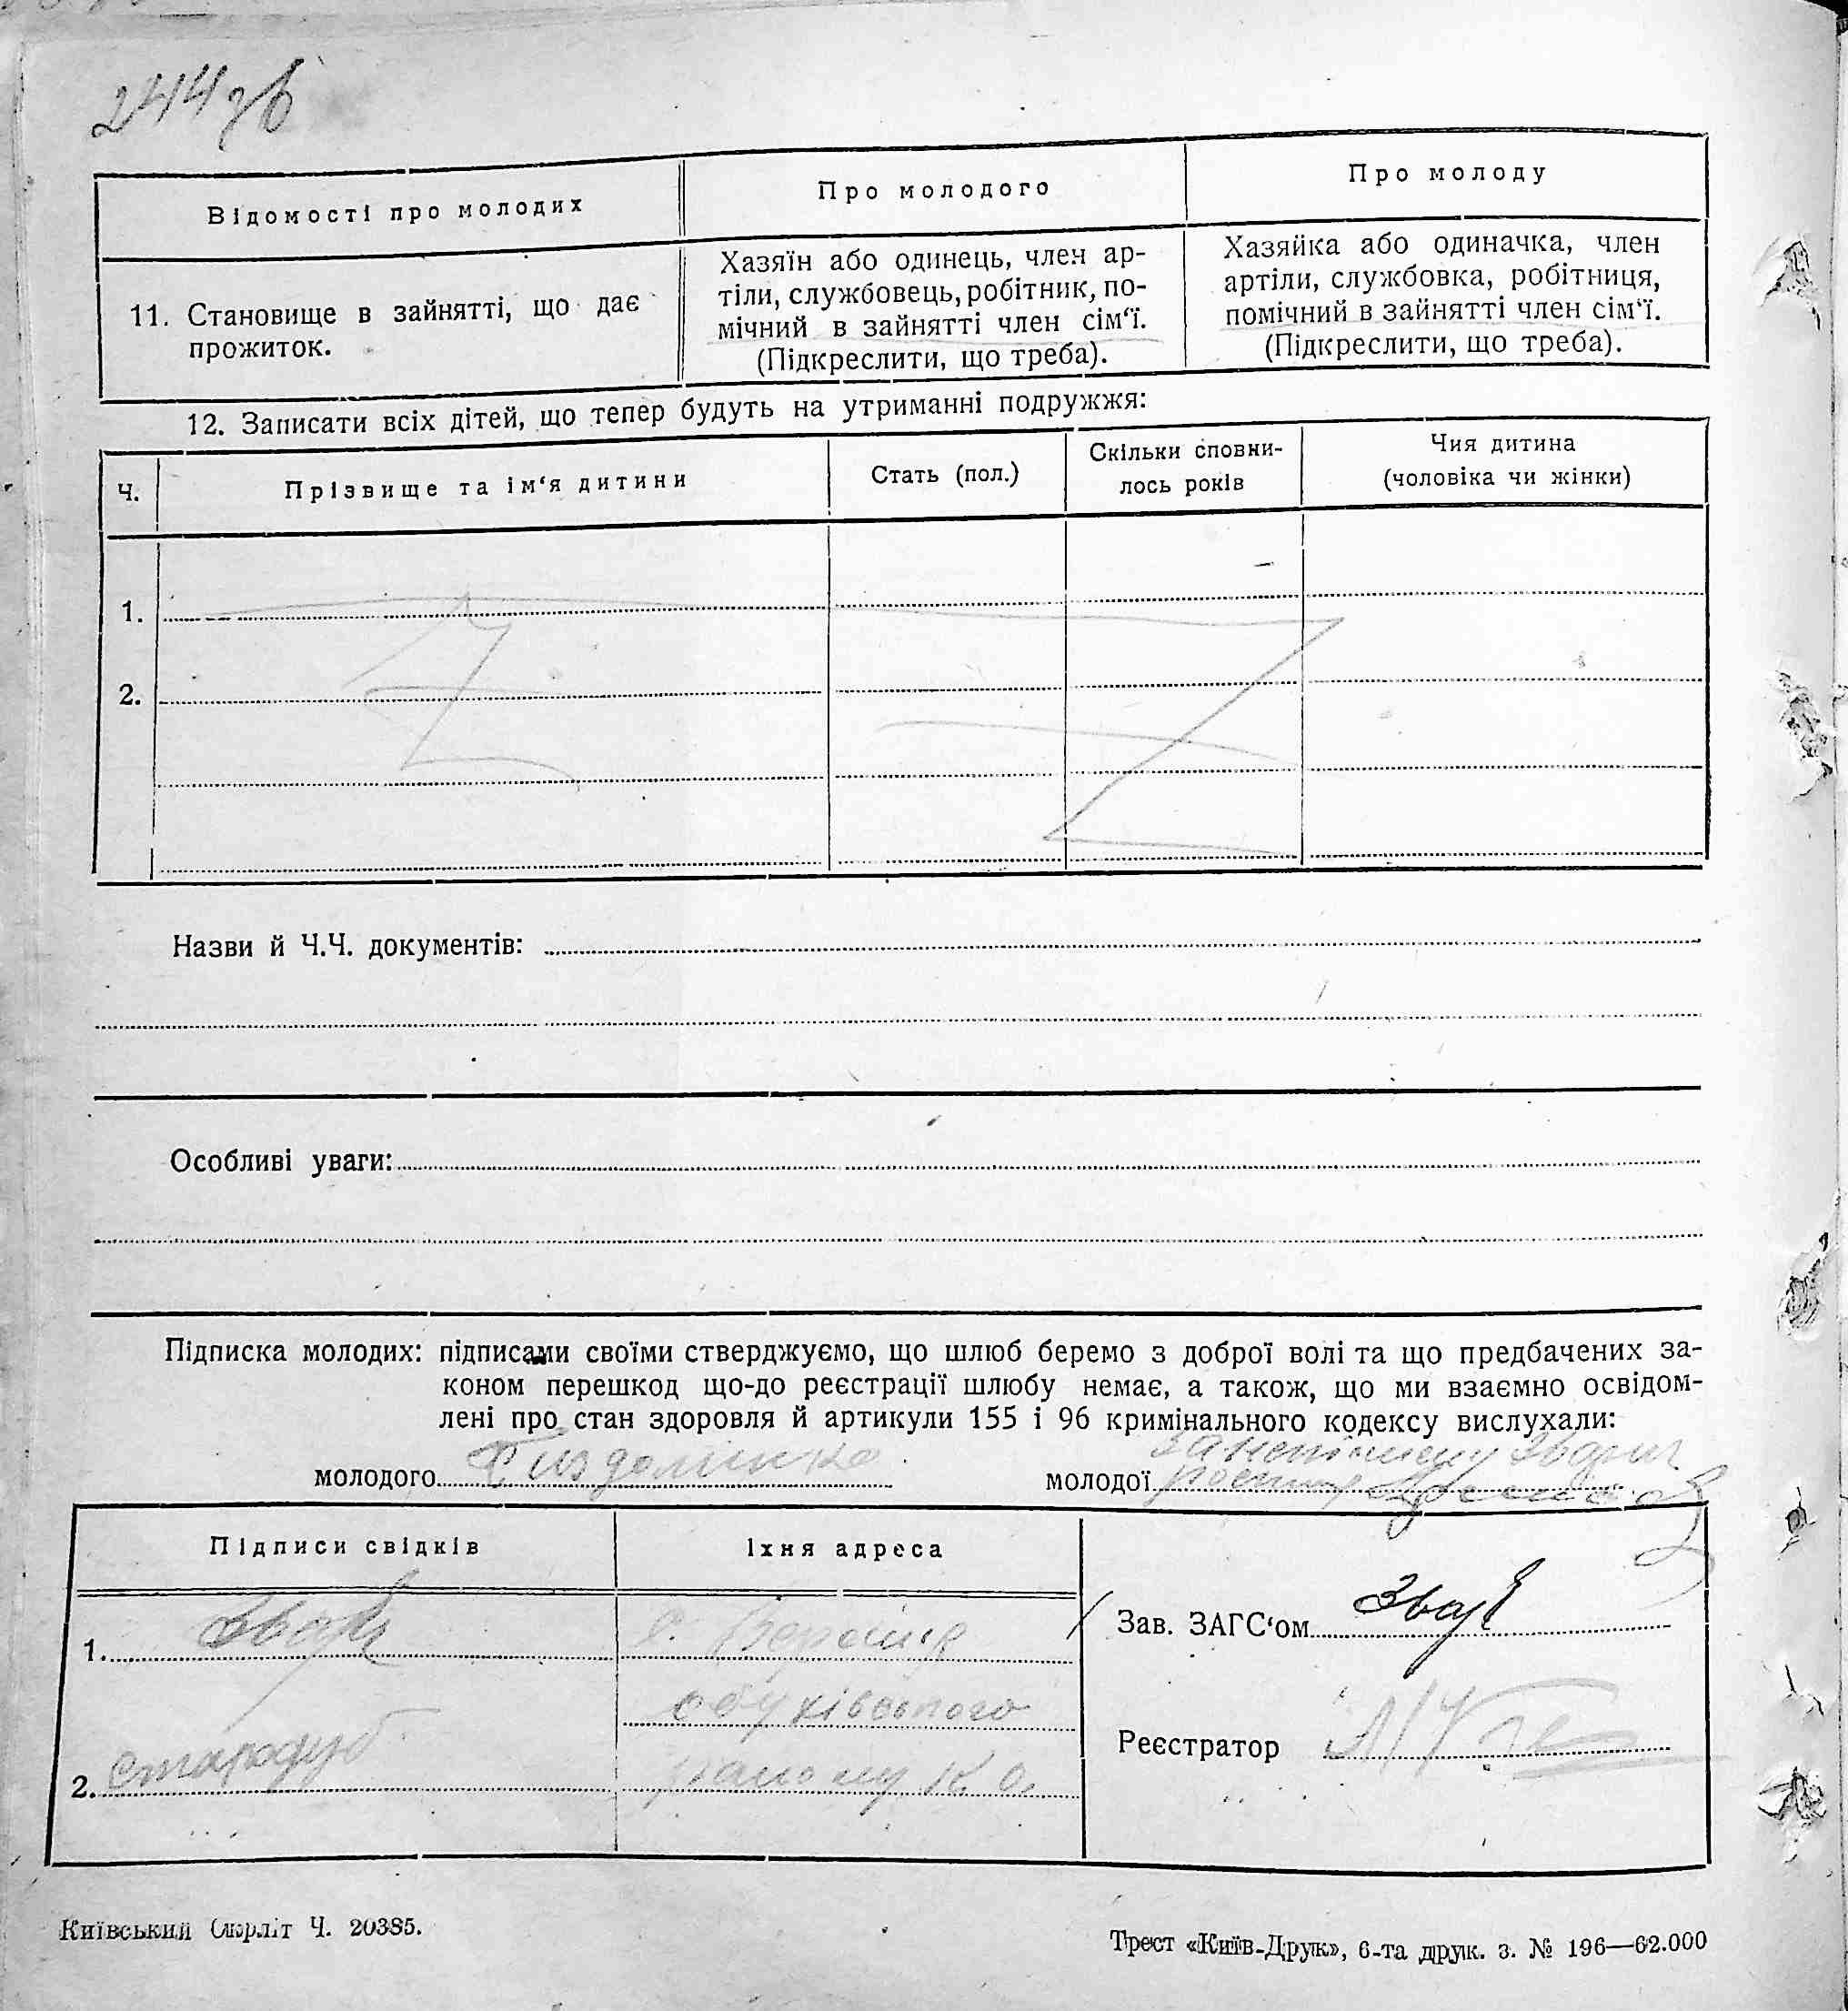 244 зв
Відомості про молодих
Про молодого
Про молоду
11. Становище в зайнятті, що дає
прожиток.
Хазяїн або одинець, член ар-
тіли, службовець, робітник, по-
мічний в зайнятті член сім‘ї.
(Підкреслити, що треба).
Хазяйка або одиначка, член
артіли, службовка, робітниця,
помічний в зайнятті член сім‘ї.
(Підкреслити, що треба).
12. Записати всіх дітей, що тепер будуть на утриманні подружжя:
Ч.
Прізвище та ім‘я дитини
Стать (пол.)
Скільки сповни-
лось років
Чия дитина
(чоловіка чи жінки)
1.
2.
Назви й Ч.Ч. документів:
Особливі уваги:
Підписка молодих: підписами своїми стверджуємо, що шлюб беремо з доброї волі та що предбачених за-
коном перешкод що-до реєстрації шлюбу немає, а також, що ми взаємно освідом-
лені про стан здоровля й артикули 155 і 96 кримінального кодексу вислухали:
молодого
молодої
Підписи свідків
Їхня адреса
1.
с.
Обуківського
2. Стародуб
району К. О.
Зав. ЗАГС‘ом
Реєстратор
Київський Окрліт Ч. 20385.
Трест «Київ-Друк», 6-та друк. з. № 196—62.000